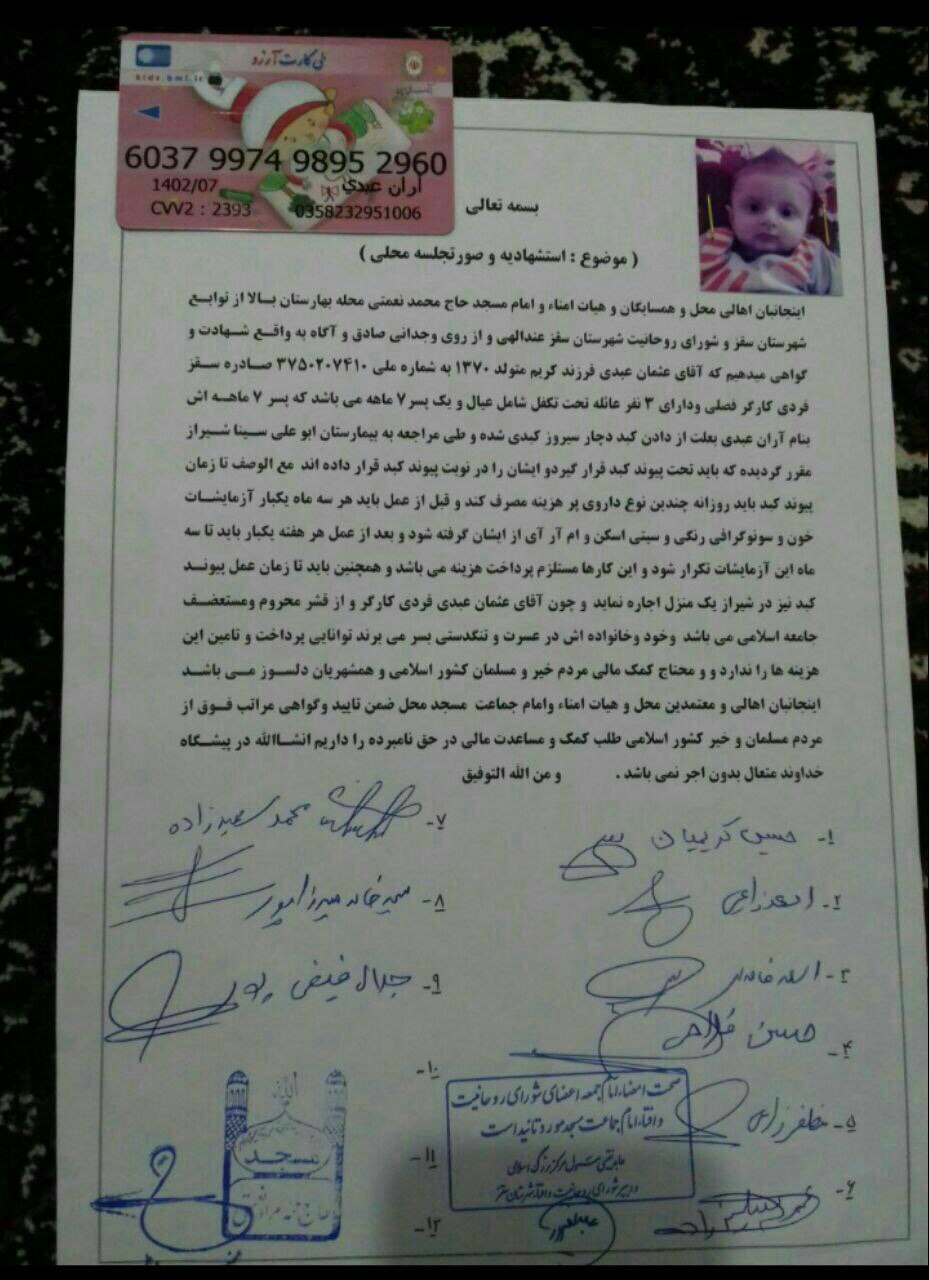 ملی کارت آرزو
kids.bmi.ir
6037 9974 9895 2960
1402/07
آران عبدی
CVV2 : 2393
0358232951006
بسمه تعالی
( موضوع : استشهادیه و صورتجلسه محلی )
اینجانبان اهالی محل و همسایگان و هیات امناء و امام مسجد حاج محمد نعمتی محله بهارستان بالا از توابع
شهرستان سقز و شورای روحانیت شهرستان سقز عندالهی و از روی وجدانی صادق و آگاه به واقع شهادت و
گواهی میدهیم که آقای عثمان عبدی فرزند کریم متولد ۱۳۷۰ به شماره ملی ۳۷۵۰۲۰۷۴۱۰ صادره سقز
فردی کارگر فصلی ودارای ۳ نفر عائله تحت تکفل شامل عیال و یک پسر ۷ ماهه می باشد که پسر ۷ ماهه اش
بنام آران عبدی بعلت از دادن کبد دچار سیروز کبدی شده و طی مراجعه به بیمارستان ابو علی سینا شیراز
مقرر گردیده که باید تحت پیوند کبد قرار گیردو ایشان را در نوبت پیوند کبد قرار داده اند مع الوصف تا زمان
پیوند کبد باید روزانه چندین نوع داروی پر هزینه مصرف کند و قبل از عمل باید هر سه ماه یکبار آزمایشات
خون و سونوگرافی رنگی و سیتی اسکن و ام آر آی از ایشان گرفته شود و بعد از عمل هر هفته یکبار باید تا سه
ماه این آزمایشات تکرار شود و این کارها مستلزم پرداخت هزینه می باشد و همچنین باید تا زمان عمل پیوند
کبد نیز در شیراز یک منزل اجاره نماید و چون آقای عثمان عبدی فردی کارگر و از قشر محروم ومستعضف
جامعه اسلامی می باشد وخود وخانواده اش در عسرت و تنگدستی بسر می برند توانایی پرداخت و تامین این
هزینه ها را ندارد و و محتاج کمک مالی مردم خیر و مسلمان کشور اسلامی و همشهریان دلسوز می باشد
اینجانبان اهالی و معتمدین محل و هیات امناء وامام جماعت مسجد محل ضمن تایید وگواهی مراتب فوق از
مردم مسلمان و خیر کشور اسلامی طلب کمک و مساعدت مالی در حق نامبرده را داریم انشاالله در پیشگاه
خداوند متعال بدون اجر نمی باشد . و من الله التوفیق
۱- حسین کریمیان
۲-
۳-
۴- حسن فلاحی
۵- مظفر
۶-
۷- محمد سعیدزاده
۸-
۹- جلال فیضی پور
۱۰-
۱۱-
۱۲-
صحت امضاء امام جمعه اعضای شورای روحانیت
و افتاء امام جماعت مسجد مورد تائید است
مسجد